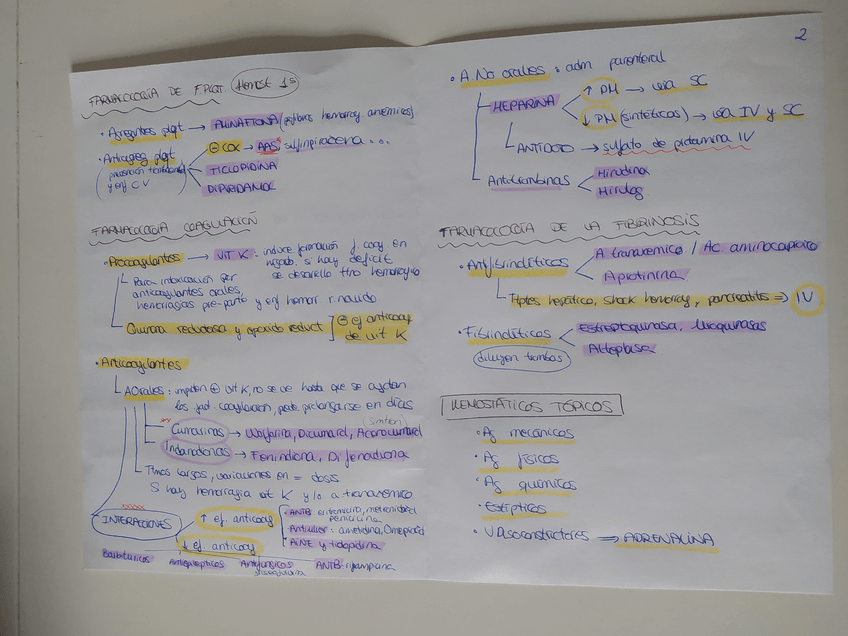 2
FARMACOLOGÍA DE F.PLAQT. Hemost 1ª
· Agregantes plqt → ALINATTONA (profilaxis hemorrag. anémicos)
· Antiagreg plqt
prevención
y enf CV
⊖ COX → AAS, sulfinpirazona...
TICLOPIDINA
DIPIRIDAMOL
FARMACOLOGÍA COAGULACIÓN
· Procoagulantes → VIT K : induce formación f. coag en
hígado. Si hay déficit
se desarrolla tno hemorrágico
Para intoxicación por
anticoagulantes orales,
hemorragias pre-parto y enf hemor r. nacido
Quinona reductasa y epóxido reduct] ⊖ ef anticoag
de vit K
· Anticoagulantes
A Orales : impiden ⊕ vit K, no se ve hasta que se agotan
los fact. coagulación, puede prolongarse en días
(Sintrom)
Cumarinas → Warfarina, Dicumarol, Acenocumarol
Indanodionas → Fenindiona, Difenadiona
Tnos largos, variaciones en = dosis
Si hay hemorragia vit K y/o a tranexámico
INTERACCIONES
↑ ef. anticoag
· ANTB: eritromicina, metronidazol
penicilina
· Antiulcer: cimetidina, Omeprazol
· AINE y ticlopidina
↓ ef. anticoag
Barbitúricos Antiepilépticos Antifúngicos ANTB: rifampicina
griseofulvina
· A. No orales : adm parenteral
HEPARINA
↑ PM → vía SC
↓ PM (sintéticos) → vía IV y SC
ANTIDOTO → sulfato de protamina IV
Antitrombinas
Hirudina
Hirulog
FARMACOLOGÍA DE LA FIBRINOSIS
· Antifibrinolíticos
A tranexamico / Ac. aminocaproico
Aprotinina
Tnptes hepático, shock hemorrag, pancreatitis ⇒ IV
· Fibrinolíticos
diluyen trombos
Estreptoquinasa, Uroquinasa
Alteplasa
HEMOSTÁTICOS TÓPICOS
· Ag mecánicos
· Ag físicos
· Ag químicos
· Estípticos
· Vasoconstrictores ⇒ ADRENALINA